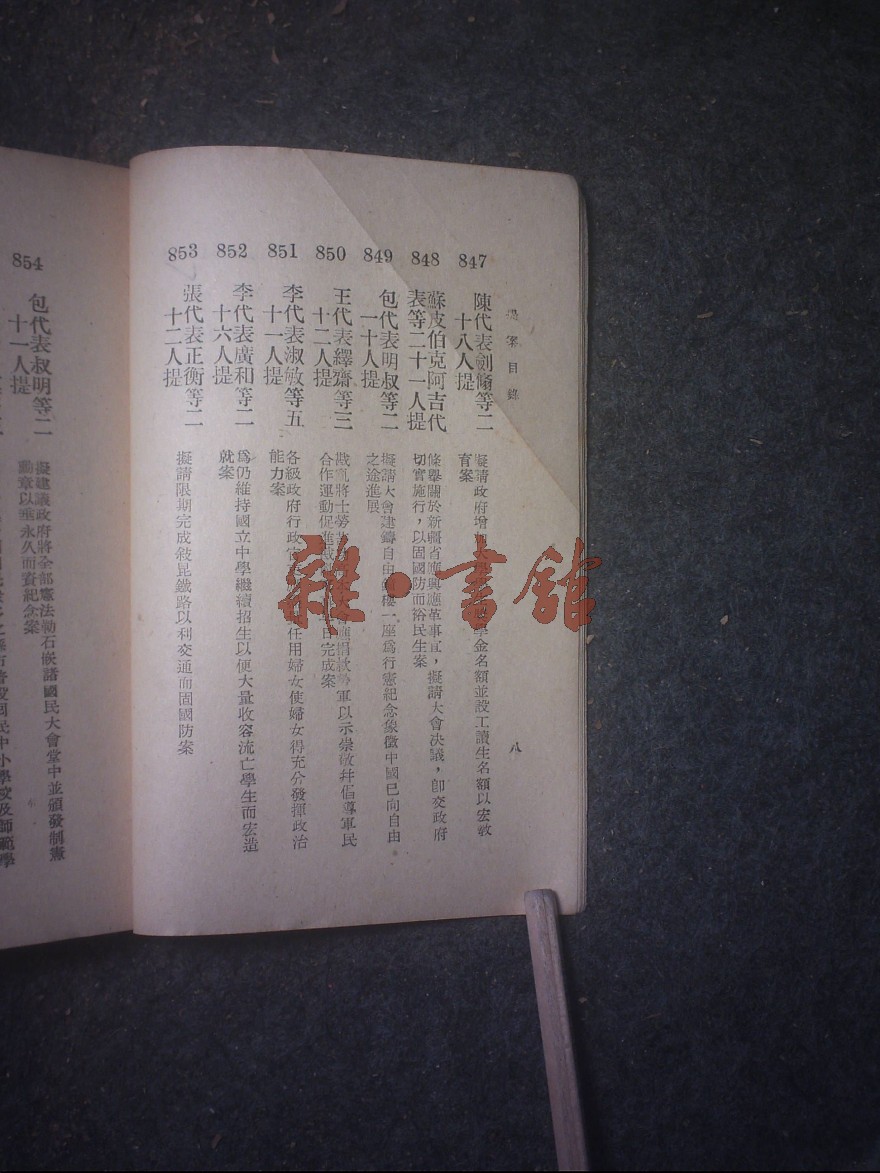 提案目錄
八
847
陳代表劍翛等二
十八人提
擬請政府增
學金名額並設工讀生名額以宏教
育案
848
蘇皮伯克阿吉代
表等二十一人提
條舉關於新疆省應興應革事宜，擬請大會決議，卽交政府
切實施行，以固國防而裕民生案
849
包代表明叔等二
一十人提
擬請大會建鑄自由樓一座爲行憲紀念象徵中國已向自由
之途進展
850
王代表繹齋等三
十二人提
戡亂將士勞
軍以示崇敬幷倡導軍民
合作運動促進戡日完成案
851
李代表淑敏等五
十一人提
各級政府行政官任用婦女使婦女得充分發揮政治
能力案
852
李代表廣和等二
十六人提
爲仍維持國立中學繼續招生以便大量收容流亡學生而宏造
就案
853
張代表正衡等二
十二人提
擬請限期完成敍昆鐵路以利交通而固國防案
854
包代表叔明等二
十一人提
擬建議政府將全部憲法勒石嵌諸國民大會堂中並頒發制憲
勳章以垂永久而資紀念案
民中小學校及師範學
雜·書館